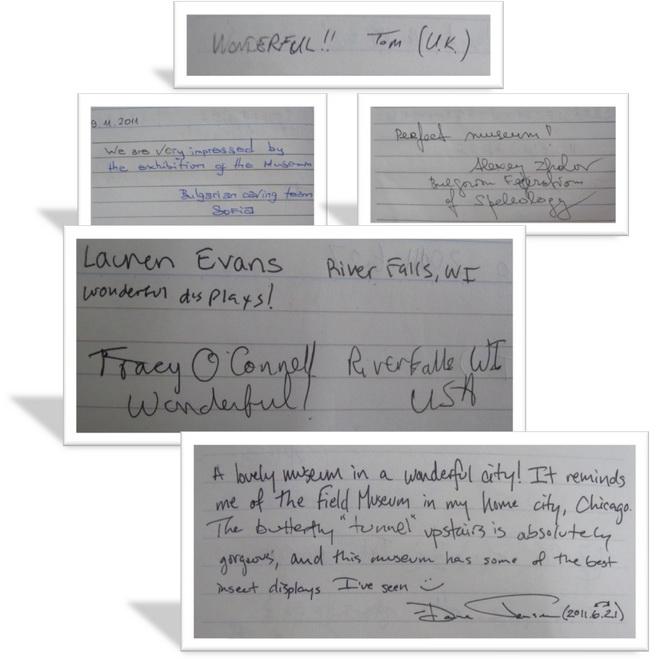 WONDERFUL!! Tom (U.K.)
9.11.2011
We are very impressed by
the exhibition of the Museum
Bulgarian caving team
Sofia
Perfect museum!
Alexey
Bulgarian Federation
of Speleology
Lauren Evans River Falls, WI
wonderful displays!
Tracy O'Connell River Falls WI
Wonderful! USA
A lovely museum in a wonderful city! It reminds
me of the Field Museum in my home city, Chicago.
The butterfly "tunnel" upstairs is absolutely
gorgeous, and this museum has some of the best
insect displays I've seen :)
(2011.6.21)